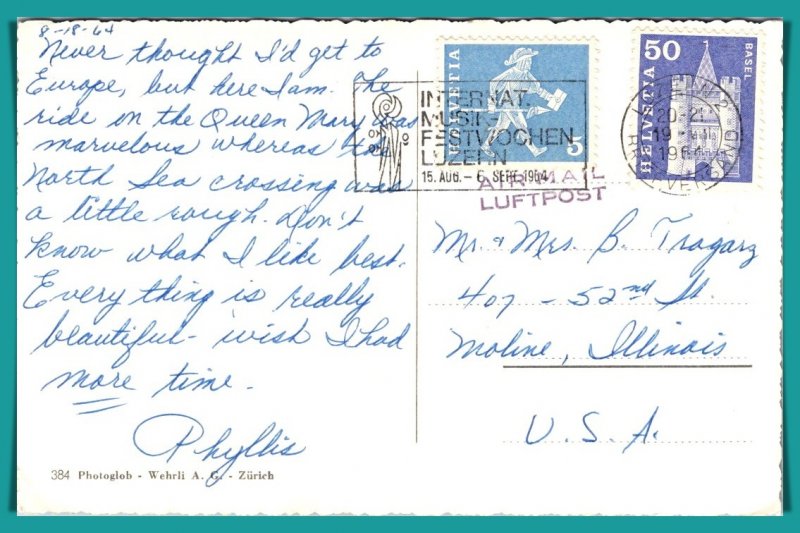 8-18-64
Never thought I'd get to
Europe, but here I am. The
ride on the Queen Mary was
marvelous whereas the
North Sea crossing was
a little rough. Don't
know what I like best.
Every thing is really
beautiful - wish I had
more time.
Phyllis
384 Photoglob - Wehrli A. G. - Zürich
INTERNAT.
MUSIK-
FESTWOCHEN
LUZERN
15. AUG. - 6. SEPT. 1964
HELVETIA
5
50
HELVETIA
BASEL
20-21
19
1964
AIR MAIL
LUFTPOST
Mr. & Mrs. B. Tragarz
407 - 52nd St.
Moline, Illinois
U.S.A.